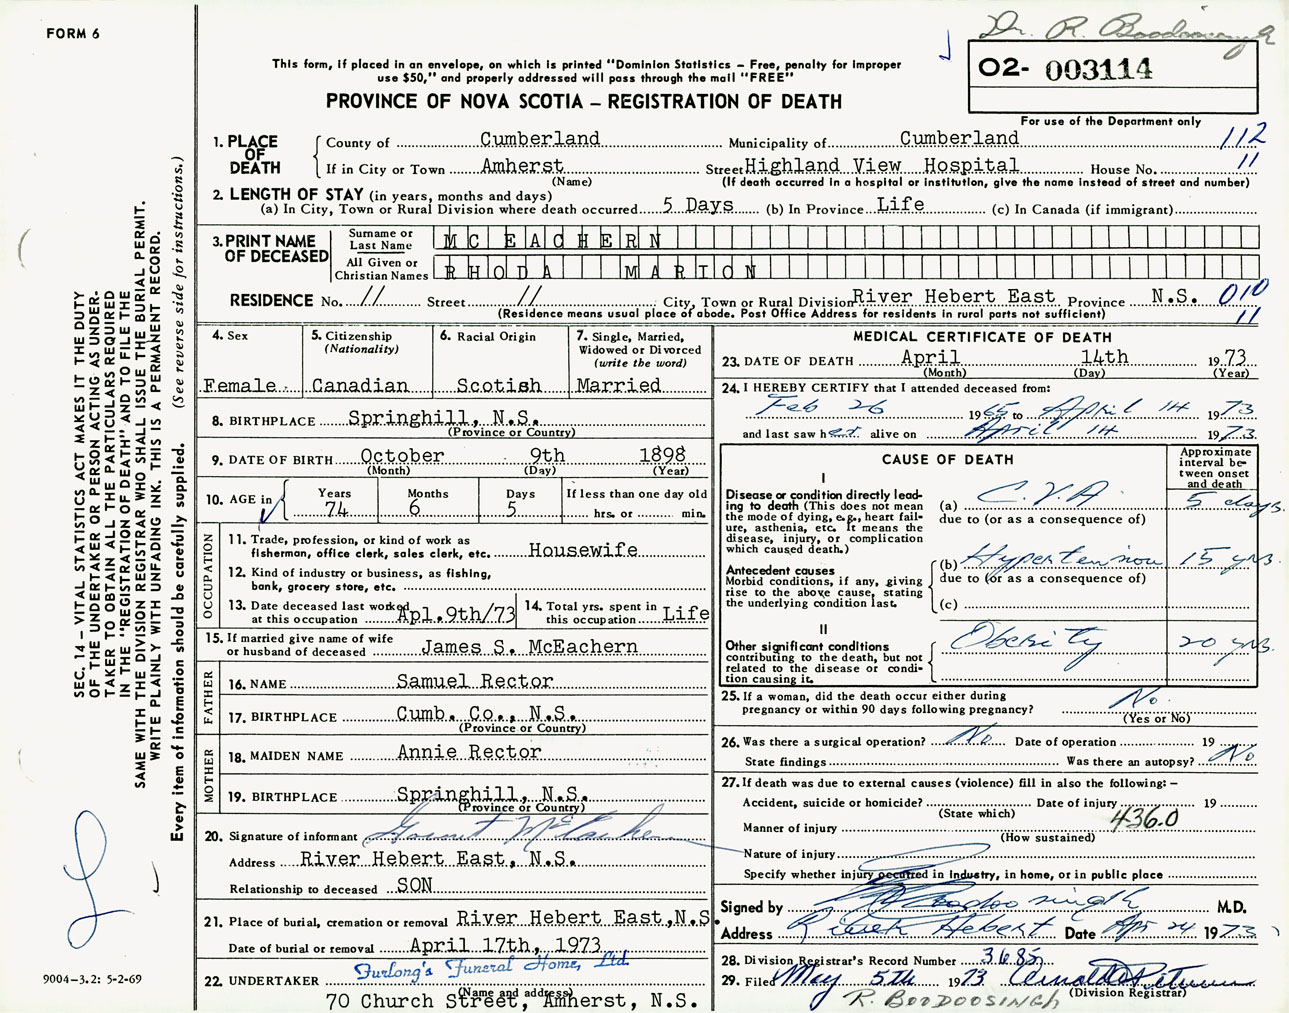 FORM 6
Dr. R. Boodoosingh
This form, if placed in an envelope, on which is printed "Dominion Statistics – Free, penalty for improper
use $50," and properly addressed will pass through the mail "FREE"
O2- 003114
PROVINCE OF NOVA SCOTIA – REGISTRATION OF DEATH
For use of the Department only
1. PLACE OF DEATH
County of Cumberland Municipality of Cumberland 112
If in City or Town Amherst Street Highland View Hospital House No. 11
(Name) (If death occurred in a hospital or institution, give the name instead of street and number)
2. LENGTH OF STAY (in years, months and days)
(a) In City, Town or Rural Division where death occurred 5 Days (b) In Province Life (c) In Canada (if immigrant)
3. PRINT NAME OF DECEASED
Surname or Last Name MC EACHERN
All Given or Christian Names RHODA MARION
RESIDENCE No. // Street // City, Town or Rural Division River Hebert East Province N.S. 010
(Residence means usual place of abode. Post Office Address for residents in rural parts not sufficient) 11
4. Sex
Female
5. Citizenship
(Nationality)
Canadian
6. Racial Origin
Scotish
7. Single, Married,
Widowed or Divorced
(write the word)
Married
8. BIRTHPLACE Springhill, N.S.
(Province or Country)
9. DATE OF BIRTH October 9th 1898
(Month) (Day) (Year)
10. AGE in Years Months Days If less than one day old
74 6 5 hrs. or min.
OCCUPATION
11. Trade, profession, or kind of work as
fisherman, office clerk, sales clerk, etc. Housewife
12. Kind of industry or business, as fishing,
bank, grocery store, etc.
13. Date deceased last worked
at this occupation Apl.9th/73
14. Total yrs. spent in
this occupation Life
15. If married give name of wife
or husband of deceased James S. McEachern
FATHER
16. NAME Samuel Rector
17. BIRTHPLACE Cumb. Co., N.S.
(Province or Country)
MOTHER
18. MAIDEN NAME Annie Rector
19. BIRTHPLACE Springhill, N.S.
(Province or Country)
20. Signature of informant McEachern
Address River Hebert East, N.S.
Relationship to deceased SON
21. Place of burial, cremation or removal River Hebert East, N.S.
Date of burial or removal April 17th, 1973
Furlong's Funeral Home, Ltd.
22. UNDERTAKER
(Name and address)
70 Church Street, Amherst, N.S.
MEDICAL CERTIFICATE OF DEATH
23. DATE OF DEATH April 14th 1973
(Month) (Day) (Year)
24. I HEREBY CERTIFY that I attended deceased from:
Feb 26 1965 to April 14 1973
and last saw her alive on April 14 1973
CAUSE OF DEATH
Approximate
interval be-
tween onset
and death
I
Disease or condition directly lead-
ing to death (This does not mean
the mode of dying, e.g., heart fail-
ure, asthenia, etc. It means the
disease, injury, or complication
which caused death.)
(a) C.V.A. 5 days.
due to (or as a consequence of)
Antecedent causes
Morbid conditions, if any, giving
rise to the above cause, stating
the underlying condition last.
(b) Hypertension 15 yrs.
due to (or as a consequence of)
(c)
II
Other significant conditions
contributing to the death, but not
related to the disease or condi-
tion causing it.
Obesity 20 yrs.
25. If a woman, did the death occur either during
pregnancy or within 90 days following pregnancy? No.
(Yes or No)
26. Was there a surgical operation? No Date of operation 19
State findings Was there an autopsy? No
27. If death was due to external causes (violence) fill in also the following: –
Accident, suicide or homicide? Date of injury 19
(State which) 436.0
Manner of injury
(How sustained)
Nature of injury
Specify whether injury occurred in industry, in home, or in public place
Signed by Boodoosingh M.D.
Address River Hebert Date Apr 24 1973
28. Division Registrar's Record Number 3685
29. Filed May 5th 1973
(Division Registrar)
R. BOODOOSINGH
SEC. 14 – VITAL STATISTICS ACT MAKES IT THE DUTY
OF THE UNDERTAKER OR PERSON ACTING AS UNDER-
TAKER TO OBTAIN ALL THE PARTICULARS REQUIRED
IN THE "REGISTRATION OF DEATH" AND TO FILE THE
SAME WITH THE DIVISION REGISTRAR WHO SHALL ISSUE THE BURIAL PERMIT.
WRITE PLAINLY WITH UNFADING INK. THIS IS A PERMANENT RECORD.
Every item of information should be carefully supplied. (See reverse side for instructions.)
9004–3.2: 5-2-69